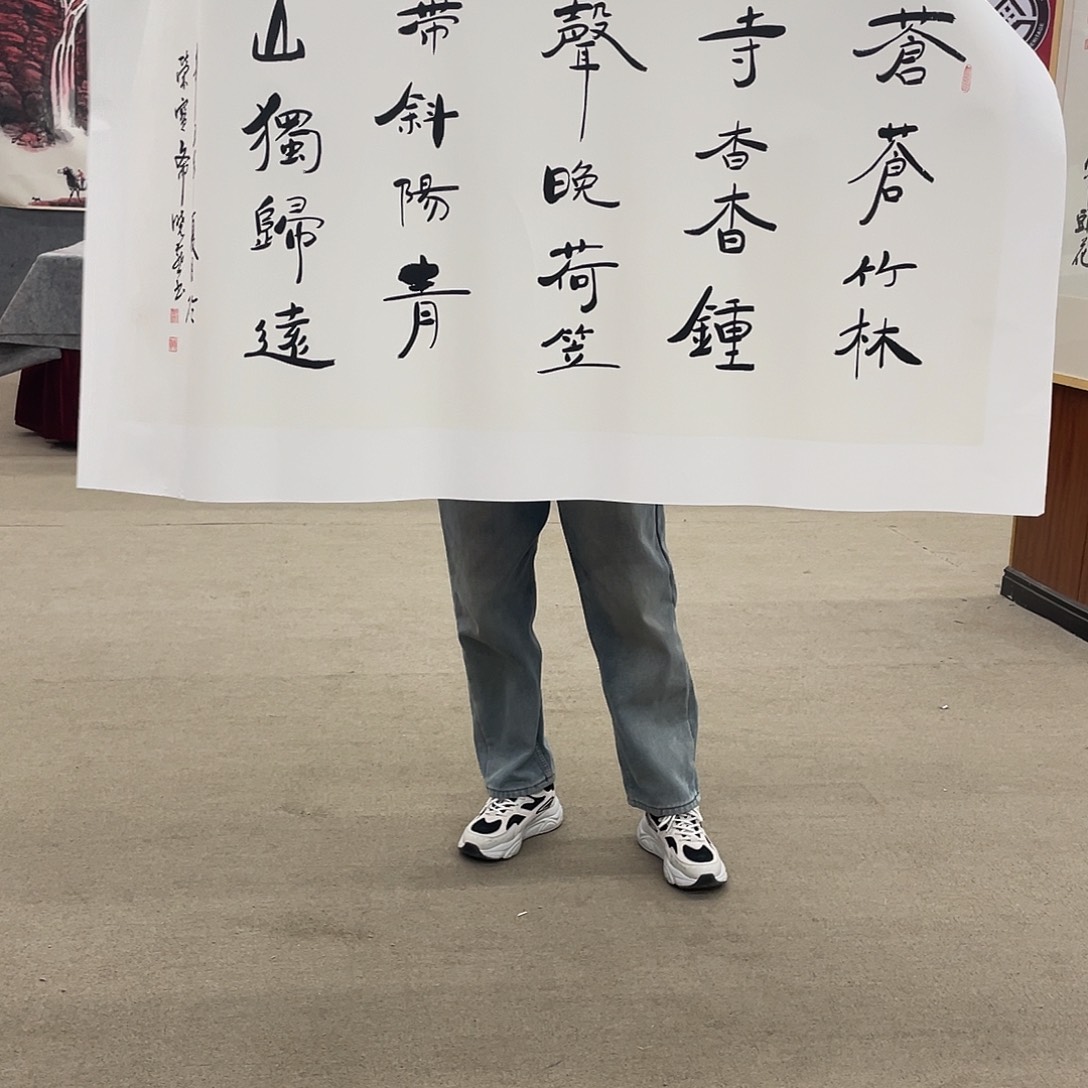 蒼蒼竹林
寺杳杳鍾
聲晚荷笠
帶斜陽青
山獨歸遠